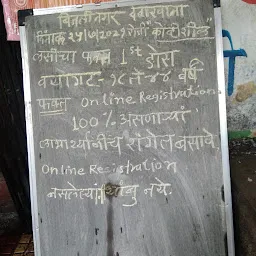 दिनांक २५/७/२०२१ रोजी "कोव्हीशील्ड"
लसीचा फक्त 1st डोस
वयोगट - १८ ते ४४ वर्ष
फक्त Online Registration
100% असणाऱ्या
लाभार्थ्यांनीच रांगेत बसावे
Online Registration
नसलेल्यांनी थांबु नये.